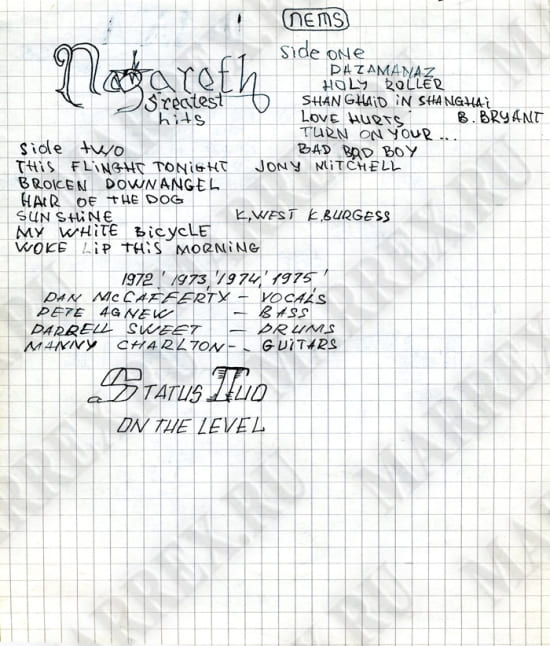 NEMS
Nazareth
greatest
hits
Side one
DAZAMANAZ
HOLY ROLLER
SHANGHAID IN SHANGHAI
LOVE HURTS B. BRYANT
TURN ON YOUR ...
BAD BAD BOY
Side two
THIS FLINGHT TONIGHT JONY MITCHELL
BROKEN DOWNANGEL
HAIR OF THE DOG
SUNSHINE K,WEST K,BURGESS
MY WHITE BICYCLE
WOKE LIP THIS MORNING
1972,' 1973,' 1974,' 1975,'
DAN McCAFFERTY – VOCALS
PETE AGNEW – BASS
DARRELL SWEET – DRUMS
MANNY CHARLTON - . GUITARS
STATUS QUO
ON THE LEVEL
MARREX.RU